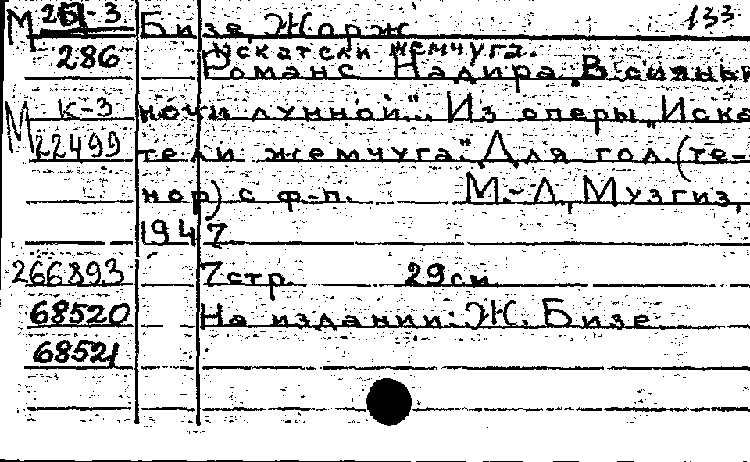 М 261-3 Бизе, Жорж 133
Искатели жемчуга.
286 Романс Надира „В сияньи
М к-3 ночи лунной"... Из оперы „Иска-
22499 тели жемчуга". Для гол. (те-
нор) с ф-п. М.-Л., Музгиз,
1947
266893 7 стр. 29 см
68520 На издании: Ж. Бизе.
68521